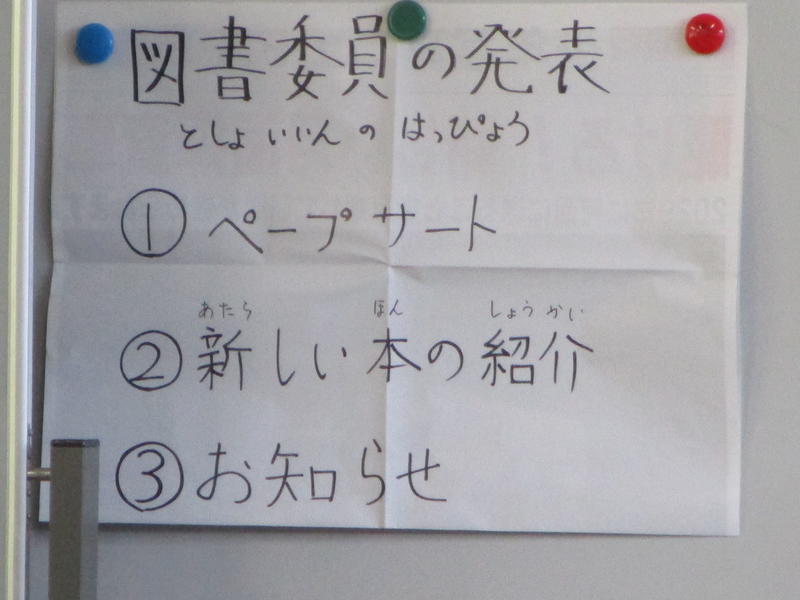 図書委員の発表
としょ いいん の はっぴょう
① ペープサート
あたら ほん しょうかい
② 新しい本の紹介
③ お知らせ